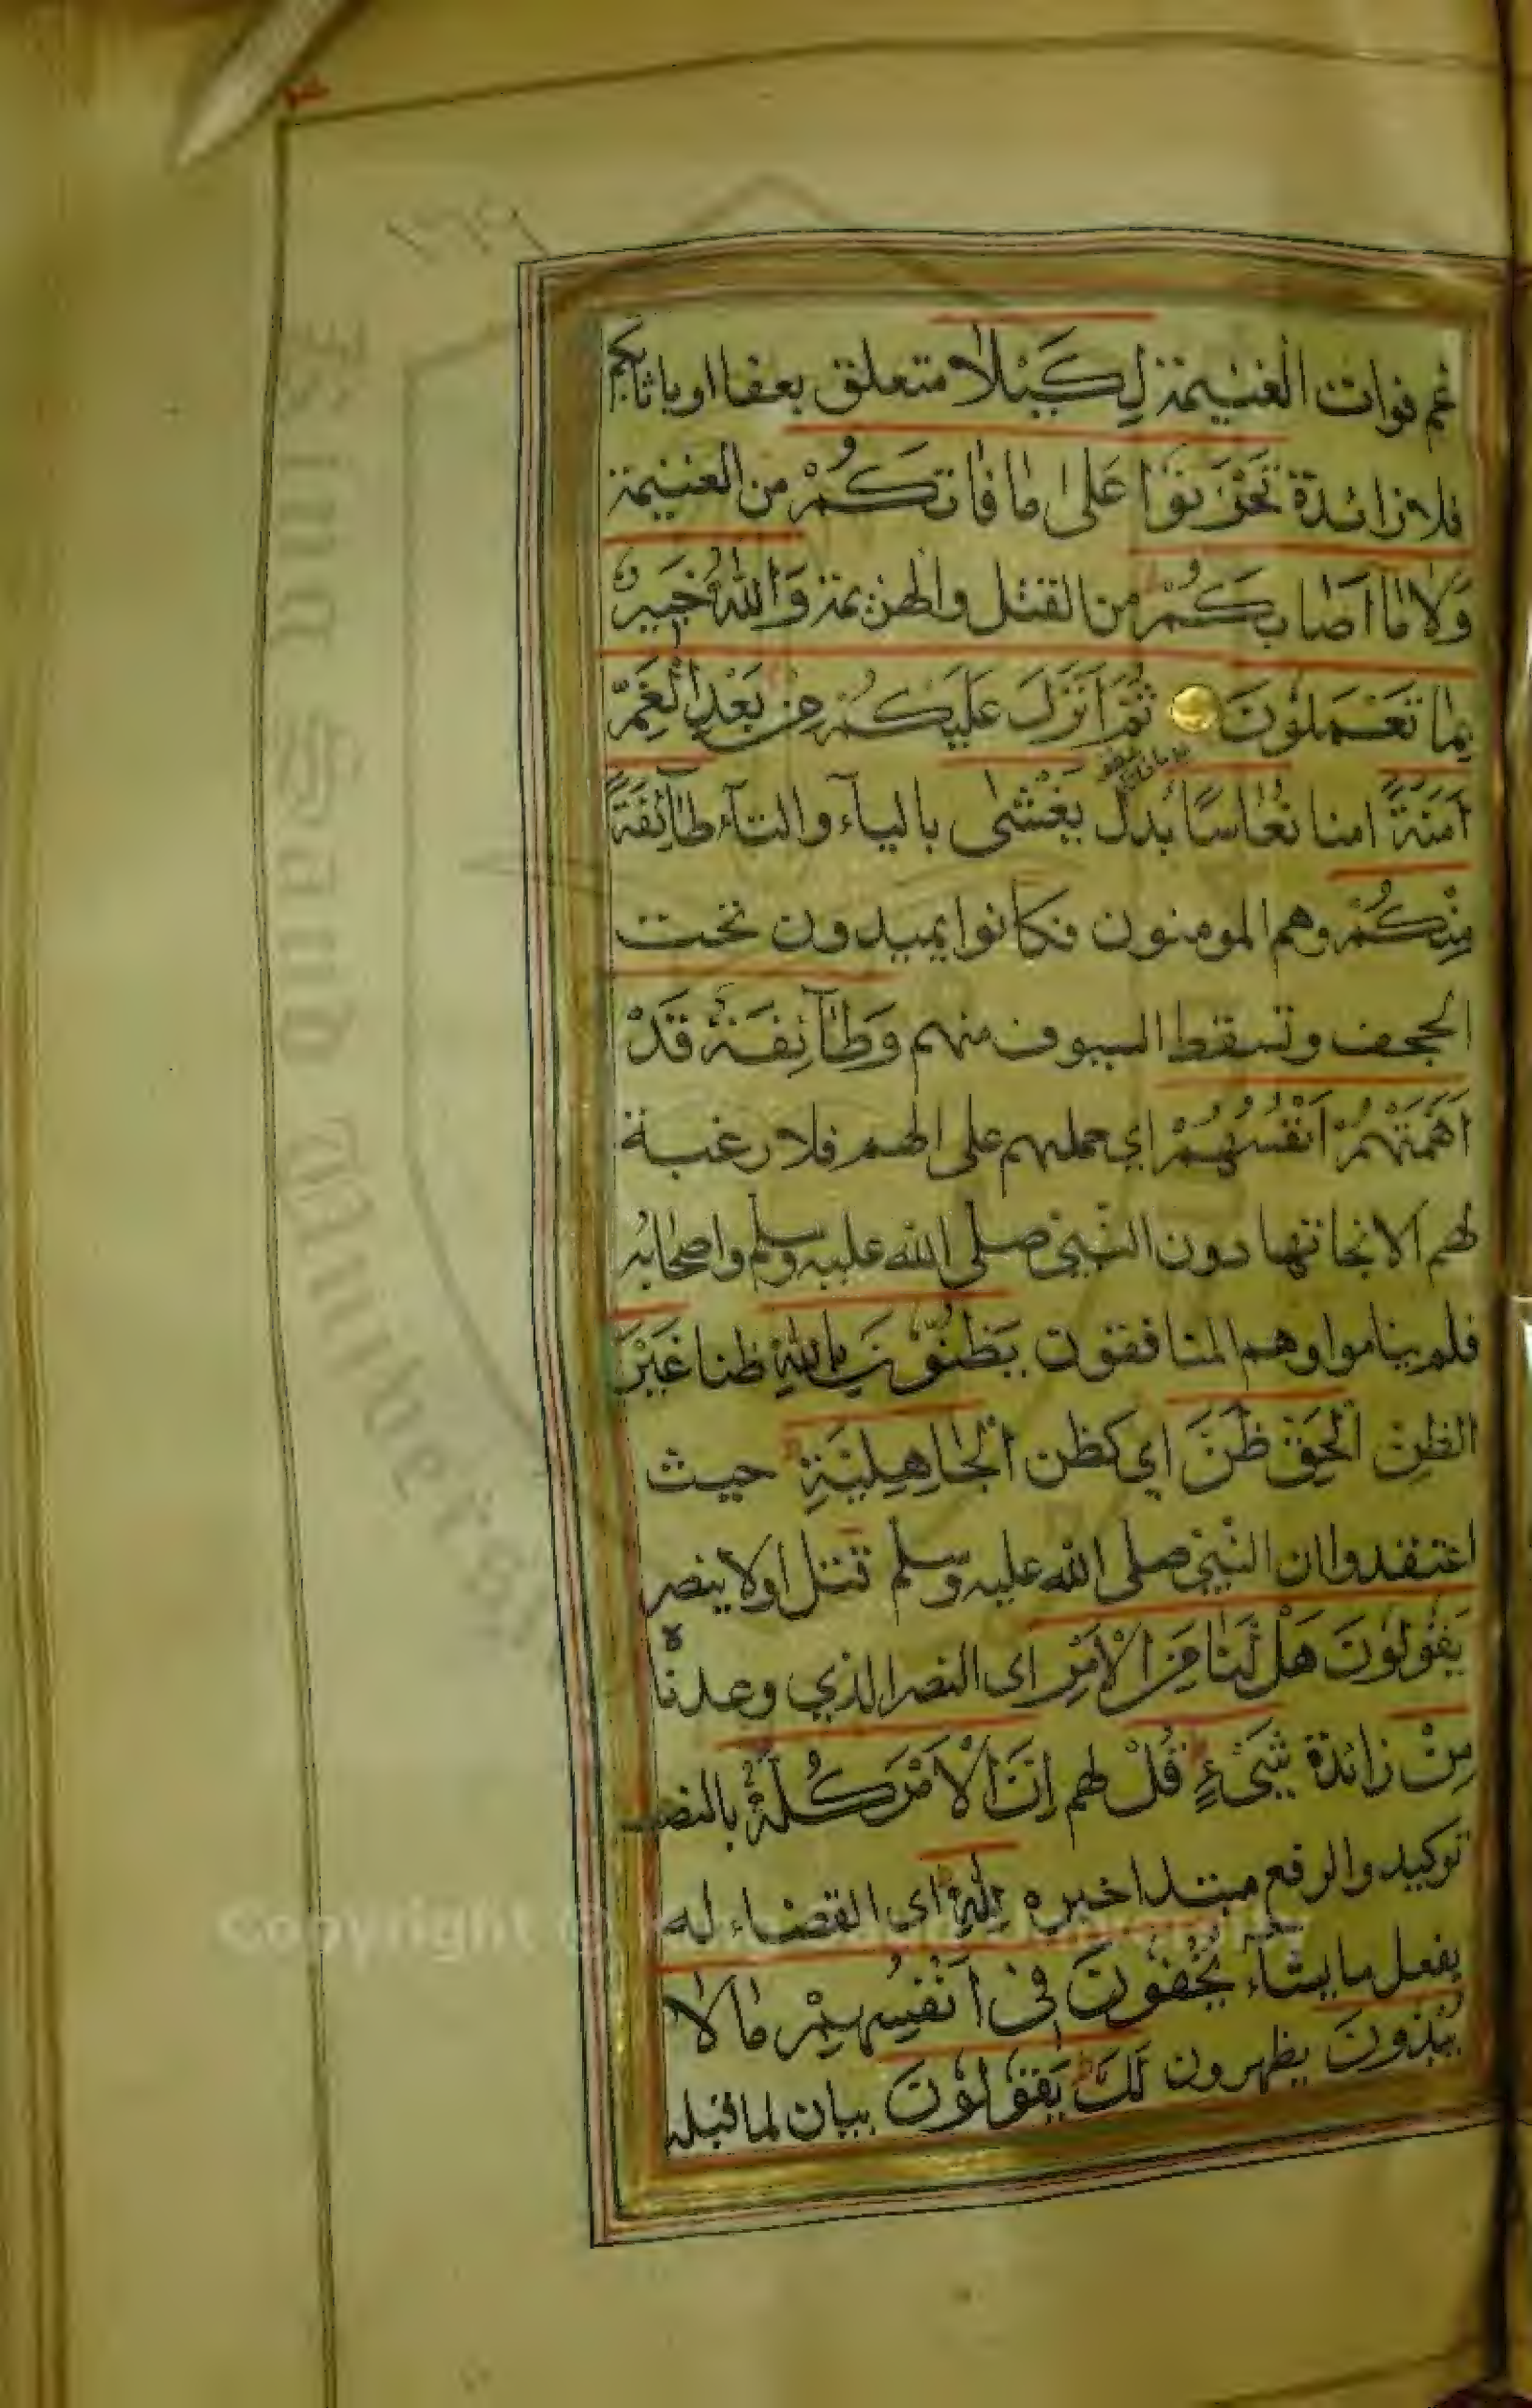 غم فوات الغنيمة لِكَيْلَا متعلق بعفا او باثابكم
فلا زائدة تَحْزَنُوْا عَلٰى مَا فَاتَكُمْ من الغنيمة
وَلَا مَا اَصَابَكُمْ من القتل والهزيمة وَاللّٰهُ خَبِيْرٌ
بِمَا تَعْمَلُوْنَ ثُمَّ اَنْزَلَ عَلَيْكُمْ مِنْ بَعْدِ الْغَمِّ
اَمَنَةً امنا نُعَاسًا بدل يَغْشٰى بالياء والتاء طَآئِفَةً
مِنْكُمْ وهم المومنون فكانوا يميدون تحت
الحجف وتسقط السيوف منهم وَطَآئِفَةٌ قَدْ
اَهَمَّتْهُمْ اَنْفُسُهُمْ اي حملهم على الهم فلا رغبة
لهم الا نجاتها دون النبي صلى الله عليه وسلم واصحابه
فلم يناموا وهم المنافقون يَظُنُّوْنَ بِاللّٰهِ ظنا غَيْرَ
الظن الْحَقِّ ظَنَّ اي كظن الْجَاهِلِيَّةِ حيث
اعتقدوا ان النبي صلى الله عليه وسلم قتل او لا ينصر
يَقُوْلُوْنَ هَلْ لَنَا مِنَ الْاَمْرِ اى النصر الذي وعدناه
مِنْ زائدة شَيْءٍ قُلْ لهم اِنَّ الْاَمْرَ كُلَّهُ بالنصب
توكيد والرفع مبتدا خبره لِلّٰهِ اى القضاء له
يفعل ما يشاء يُخْفُوْنَ فِيْ اَنْفُسِهِمْ مَا لَا
يُبْدُوْنَ يظهرون لَكَ يَقُوْلُوْنَ بيان لما قبله
Copyright ©
King Saud University